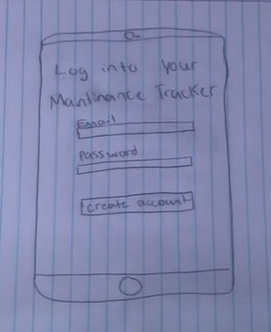 Log into your
Mantinance Tracker
Email
Password
create account